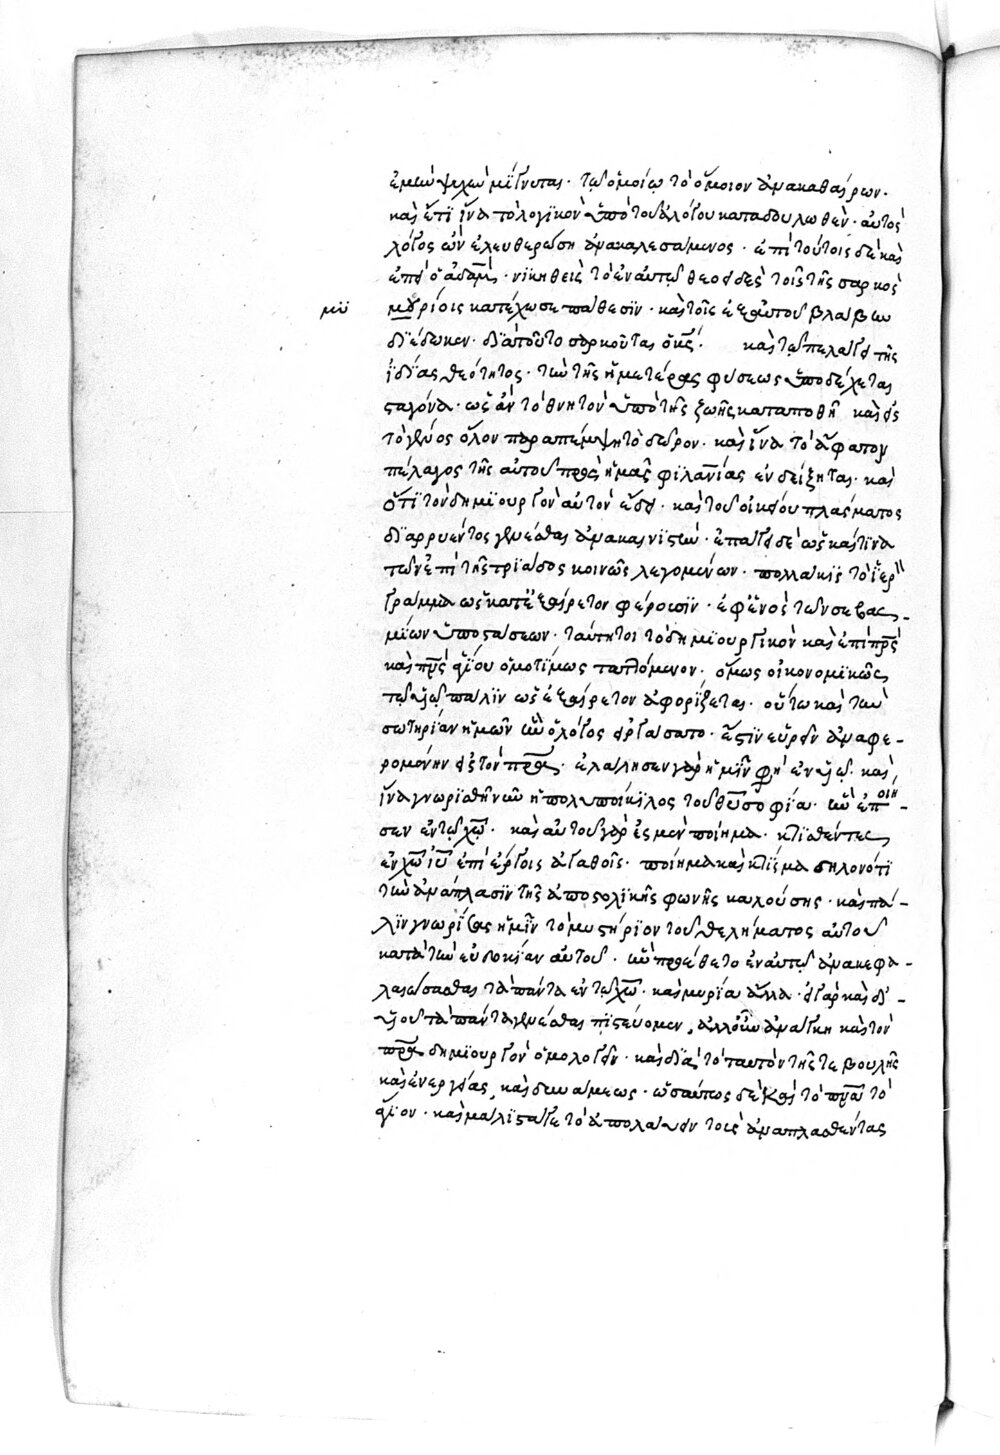 ἐμὴν ψυχὴν μίγνυται· τῷ ὁμοίῳ τὸ ὅμοιον ἀνακαθαίρων·
καὶ ἔτι ἵνα τὸ λογικὸν ὑπὸ τοῦ ἀλόγου καταδουλωθὲν· αὐτὸς
λόγος ὢν ἐλευθερώση ἀνακαλεσάμενος· ἐπὶ τούτοις δὲ καὶ
ἐπεὶ ὁ ἀδὰμ· νικηθεὶς τὸ ἐν αὐτῷ θεοειδὲς τοῖς τῆς σαρκὸς
μυ μυρίοις κατέχωσε πάθεσιν· καὶ τοῖς ἐξ αὐτοῦ βλάβην
διέδωκεν· διατοῦτο σαρκοῦται ὁ υἱός· καὶ τῷ πελάγει τῆς
ἰδίας θεότητος· τὴν τῆς ἡμετέρας φύσεως ὑποδέχεται
σταγόνα· ὡς ἂν τὸ θνητὸν ὑπὸ τῆς ζωῆς καταποθῆ καὶ εἰς
τὸ γένος ὅλον παραπέμψη τὸ δῶρον· καὶ ἵνα τὸ ἄφατον
πέλαγος τῆς αὐτοῦ πρὸς ἡμᾶς φιλανίας ἐνδείξηται· καὶ
ὅτι τὸν δημιουργὸν αὐτὸν ἔδει· καὶ τοῦ οἰκείου πλάσματος
διαρρυέντος γενέσθαι ἀνακαινιστὴν· ἐπάγει δὲ ὡς καὶ τινα
τῶν ἐπὶ τῆς τριάδος κοινῶς λεγομένων· πολλάκις τὸ ἱερὸν
γράμμα ὡς κατεξαίρετον φέρουσιν· ἐφενὸς τῶν σεβασ-
μίων ὑποστάσεων· ταύτητοι τὸ δημιουργικὸν καὶ ἐπὶ πρς
καὶ πνς ἁγίου ὁμοτίμως ταττόμενον· ὅμως οἰκονομικῶς
τῷ υἱῷ πάλιν ὡς ἐξαίρετον ἀφορίζεται· οὕτω καὶ τὴν
σωτηρίαν ἡμῶν ἣν ὁ λόγος εἰργάσατο· ἔστιν εὑρεῖν ἀναφε-
ρομένην εἰς τὸν πρα· ἐλάλησεν γὰρ ἡμῖν φη ἐν υἱῷ· καὶ,
ἵνα γνωρισθῆ νῦν ἡ πολυποίκιλος τοῦ θυ σοφία· ἣν ἐποίη-
σεν ἐν τῷ χω· καὶ αὐτοῦ γάρ ἐσμεν ποίημα· κτισθέντες
ἐν χω ιυ ἐπὶ ἔργοις ἀγαθοῖς· ποίημα καὶ κτίσμα δηλονότι
τὴν ἀνάπλασιν τῆς ἀποστολικῆς φωνῆς καλούσης· καὶ πά-
λιν γνωρίσας ἡμῖν τὸ μυστήριον τοῦ θελήματος αὐτοῦ
κατὰ τὴν εὐδοκίαν αὐτοῦ· ἣν προέθετο ἐν αὐτῷ ἀνακεφα-
λαιώσασθαι τὰ πάντα ἐν τῷ χω· καὶ μυρία ἄλλα· εἰ γὰρ καὶ δι'
υἱοῦ τὰ πάντα γενέσθαι πιστεύομεν, ἀλλοῦν ἀνάγκη καὶ τὸν
πρα δημιουργὸν ὁμολογεῖν· καὶ διὰ τὸ ταυτὸν τῆς τε βουλῆς
καὶ ἐνεργείας, καὶ δυνάμεως· ὡσαύτως δὲ καὶ τὸ πνα τὸ
ἅγιον· καὶ μάλιστά γε τὸ ἀπολαύειν τοὺς ἀναπλασθέντας